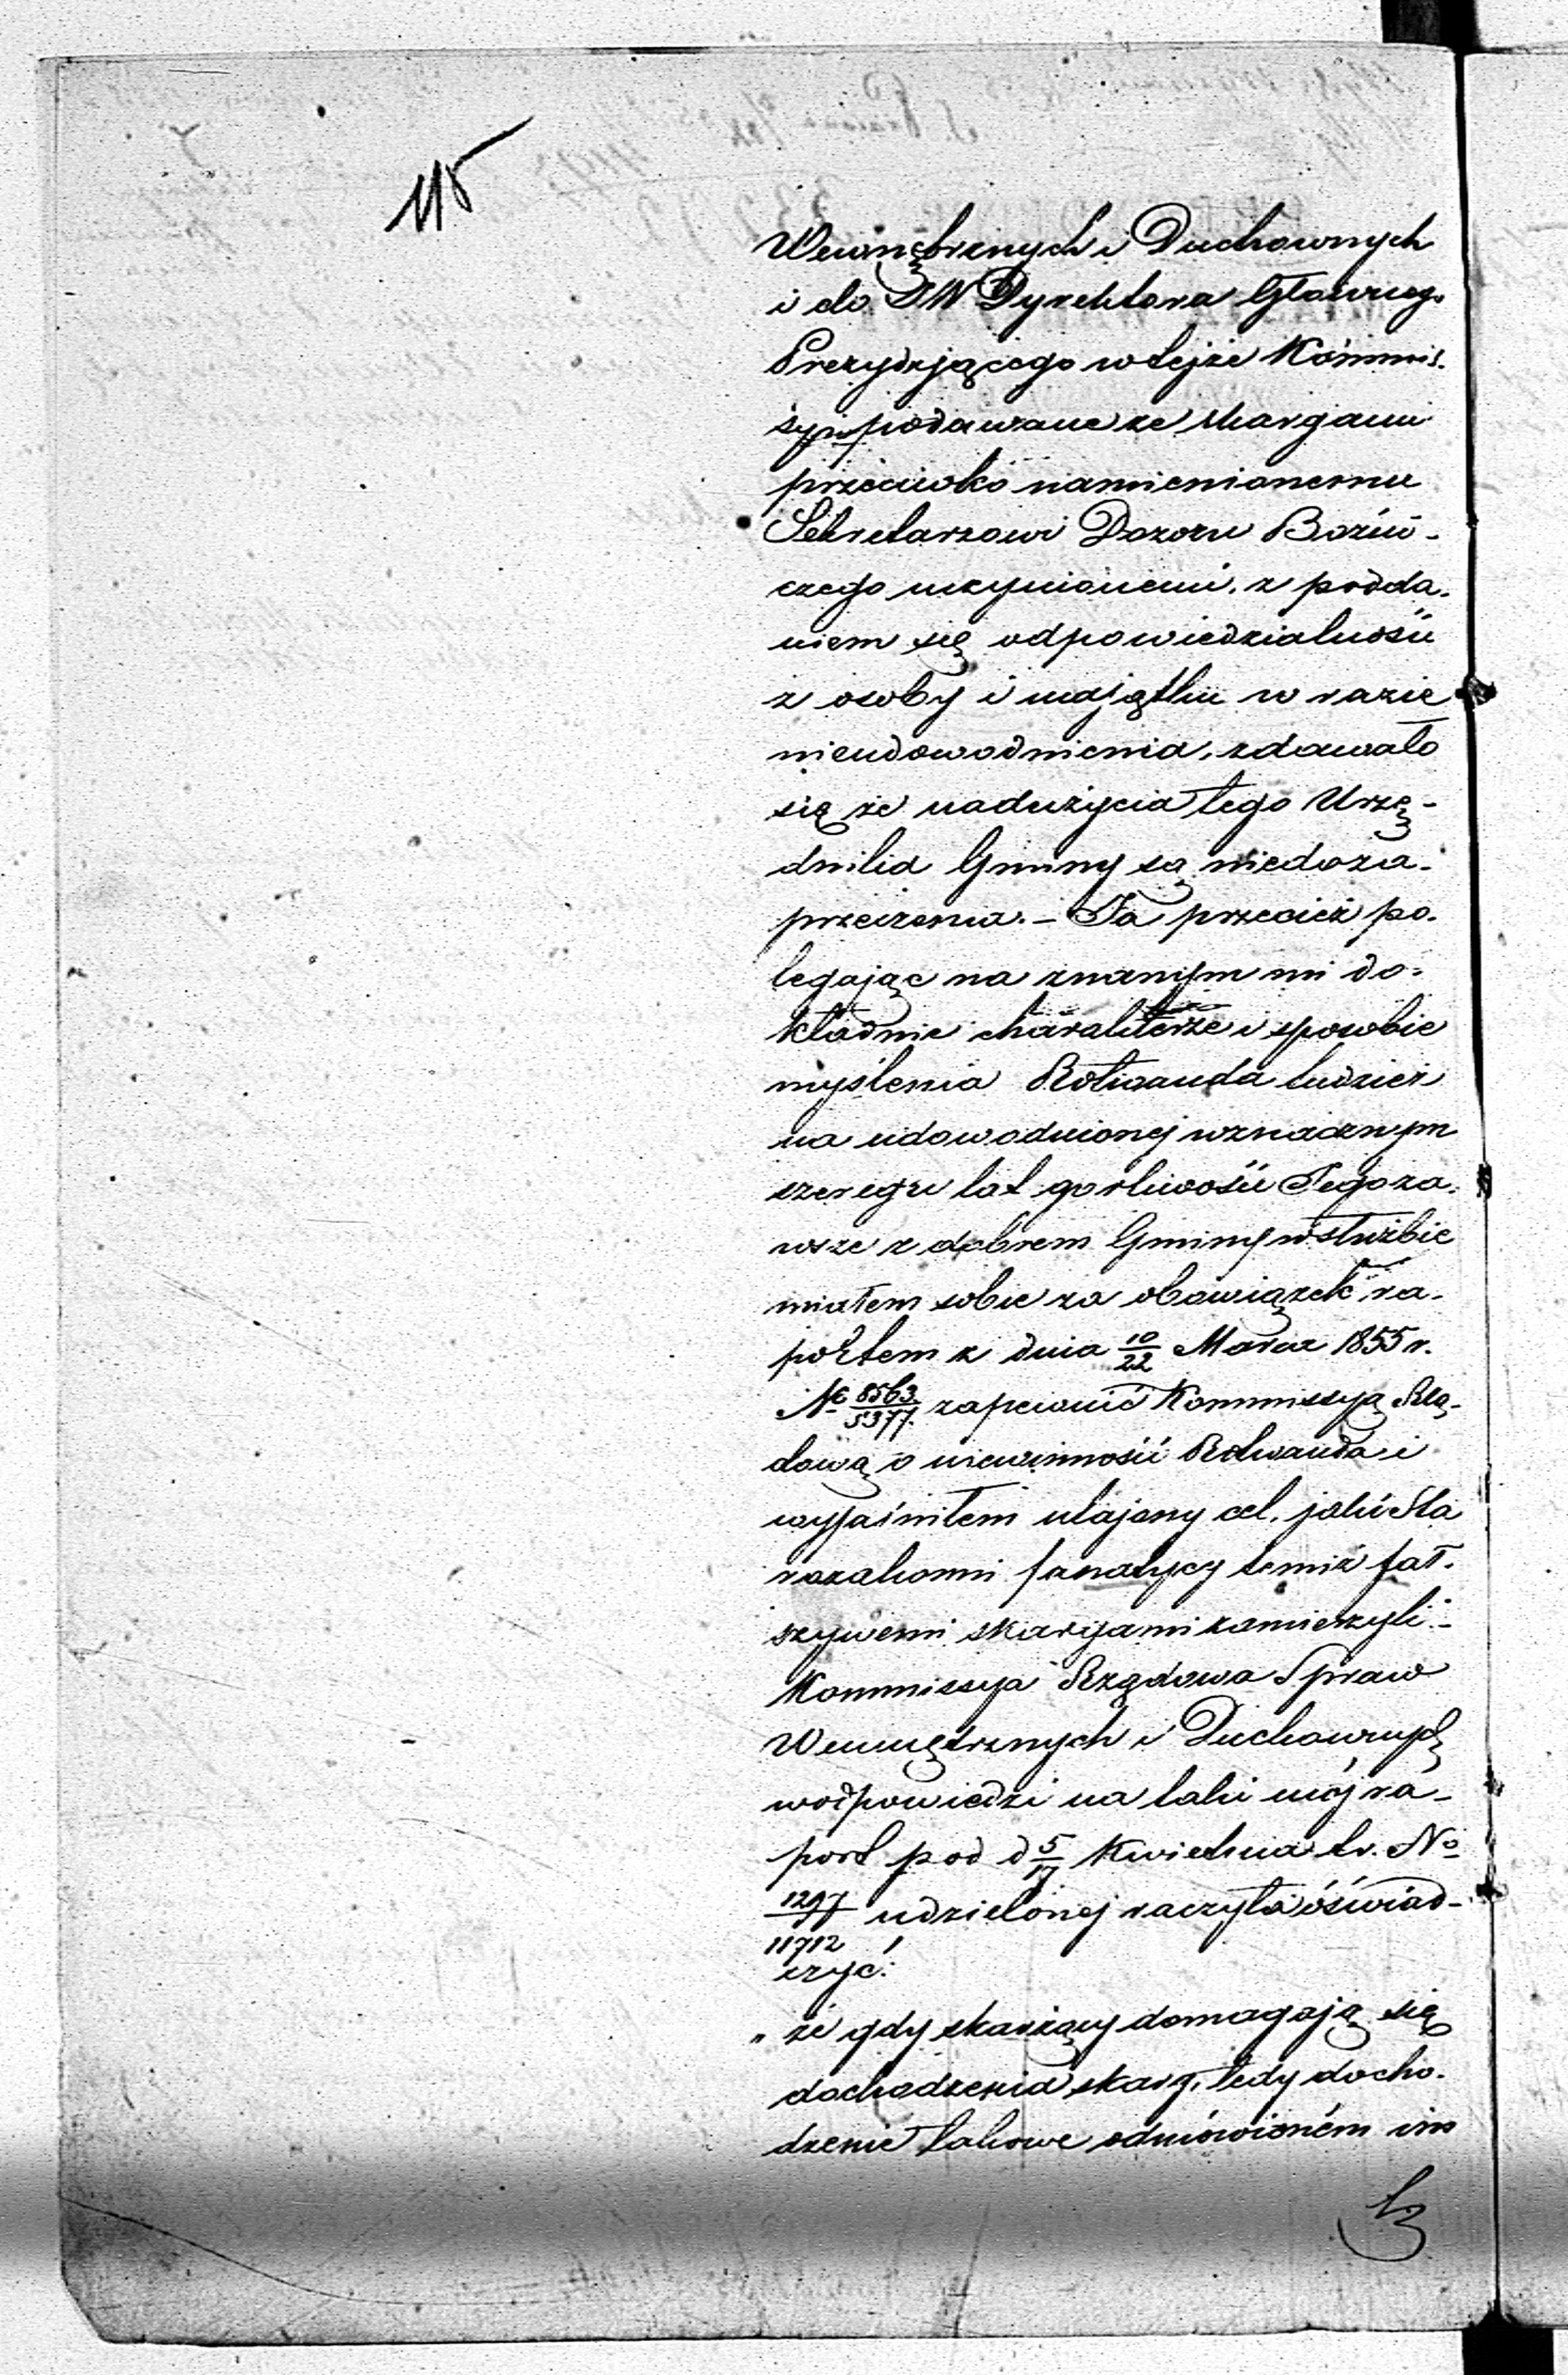 115
Wewnętrznych i Duchownych
i do JW Dyrektora Głównego
Prezydującego w tejże Kommis-
syi podawane ze skargami
przeciwko namienionemu
Sekretarzowi Dozoru Bożni-
czego uczynionemi, z podda-
niem się odpowiedzialności
z osoby i majątku w razie
nieudowodnienia, zdawało
się że nadużycia tego Urzę-
dnika Gminy są niedoza-
przeczenia. – Ja przecież po-
legając na znanym mi do-
kładnie charakterze i sposobie
myślenia Rotwanda tudzież
na udowodnionej wznacznym
szeregu lat gorliwości Jego za-
wsze z dobrem Gminy w służbie
miałem sobie za obowiązek ra-
portem z dnia 10/22 Marca 1855 r.
No 8563/5377 zapewnić Kommissyą Rzą-
dową o niewinności Rotwanda i
wyjaśniłem utajony cel, jaki Sta
rozakonni fanatycy temiż fał-
szywemi skargami zamierzyli –
Kommissya Rządowa Spraw
Wewnętrznych i Duchownych
wodpowiedzi na taki mój ra-
port pod d 5/17 Kwietnia t.r. No
1297/11712 udzielonej raczyła oświad-
czyć:
„ że gdy skarżący domagają się
dochodzenia skarg, tedy docho-
dzenie takowe odmówioném im